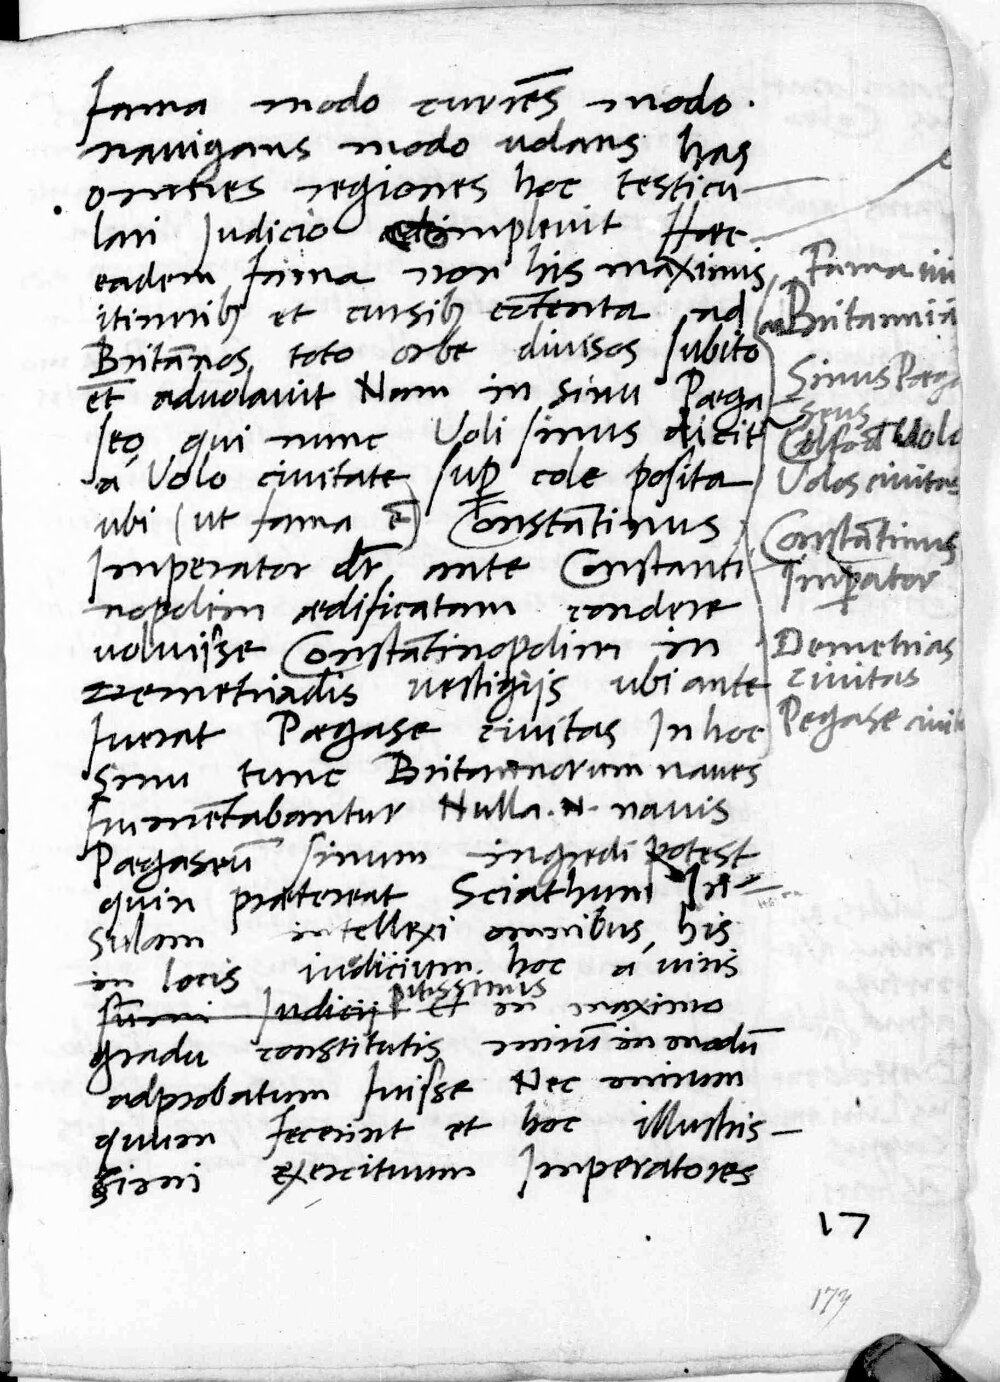 Fama modo currēs modo.
navigans modo volans has
omnes regiones hoc testicu-
lari Iudicio implevit Hæc
eadem Fama non his maximis
itinerib9 et cursib9 cōtenta ad
Britānos toto orbe divisos subito
et advolavit Nam in sinu Pæga
seo, qui nunc Voli sinus dicit
a Volo civitate sup cole posita
ubi (ut fama ē) Constātinus
Imperator dr̄, ante Constanti
nopolim ædificatam condere
voluisse Constātinopolim in
Demetriadis vestigijs ubi ante
fuerat Pægase civitas In hoc
Sinu tunc Britannorum naves
frumētabantur Nulla .N. navis
Pægaseū sinum ingredi potest
quin prætereat Sciathum In-
sulam intellexi omnibus, his
in locis iudicium hoc a viris
pitissimis
sūmi Iudicij Et in maximo
gradu constitutis mirū in modū
adprobatum fuisse Nec mirum
quum fecerint et hoc illustris-
simi exercituum Imperatores
Fama
ad Britanniā
Sinus Pæga
seus
Golfo d Volo
Volos civitas
Constātinus
Imperator
Demetrias
civitas
Pegase civit
17
173